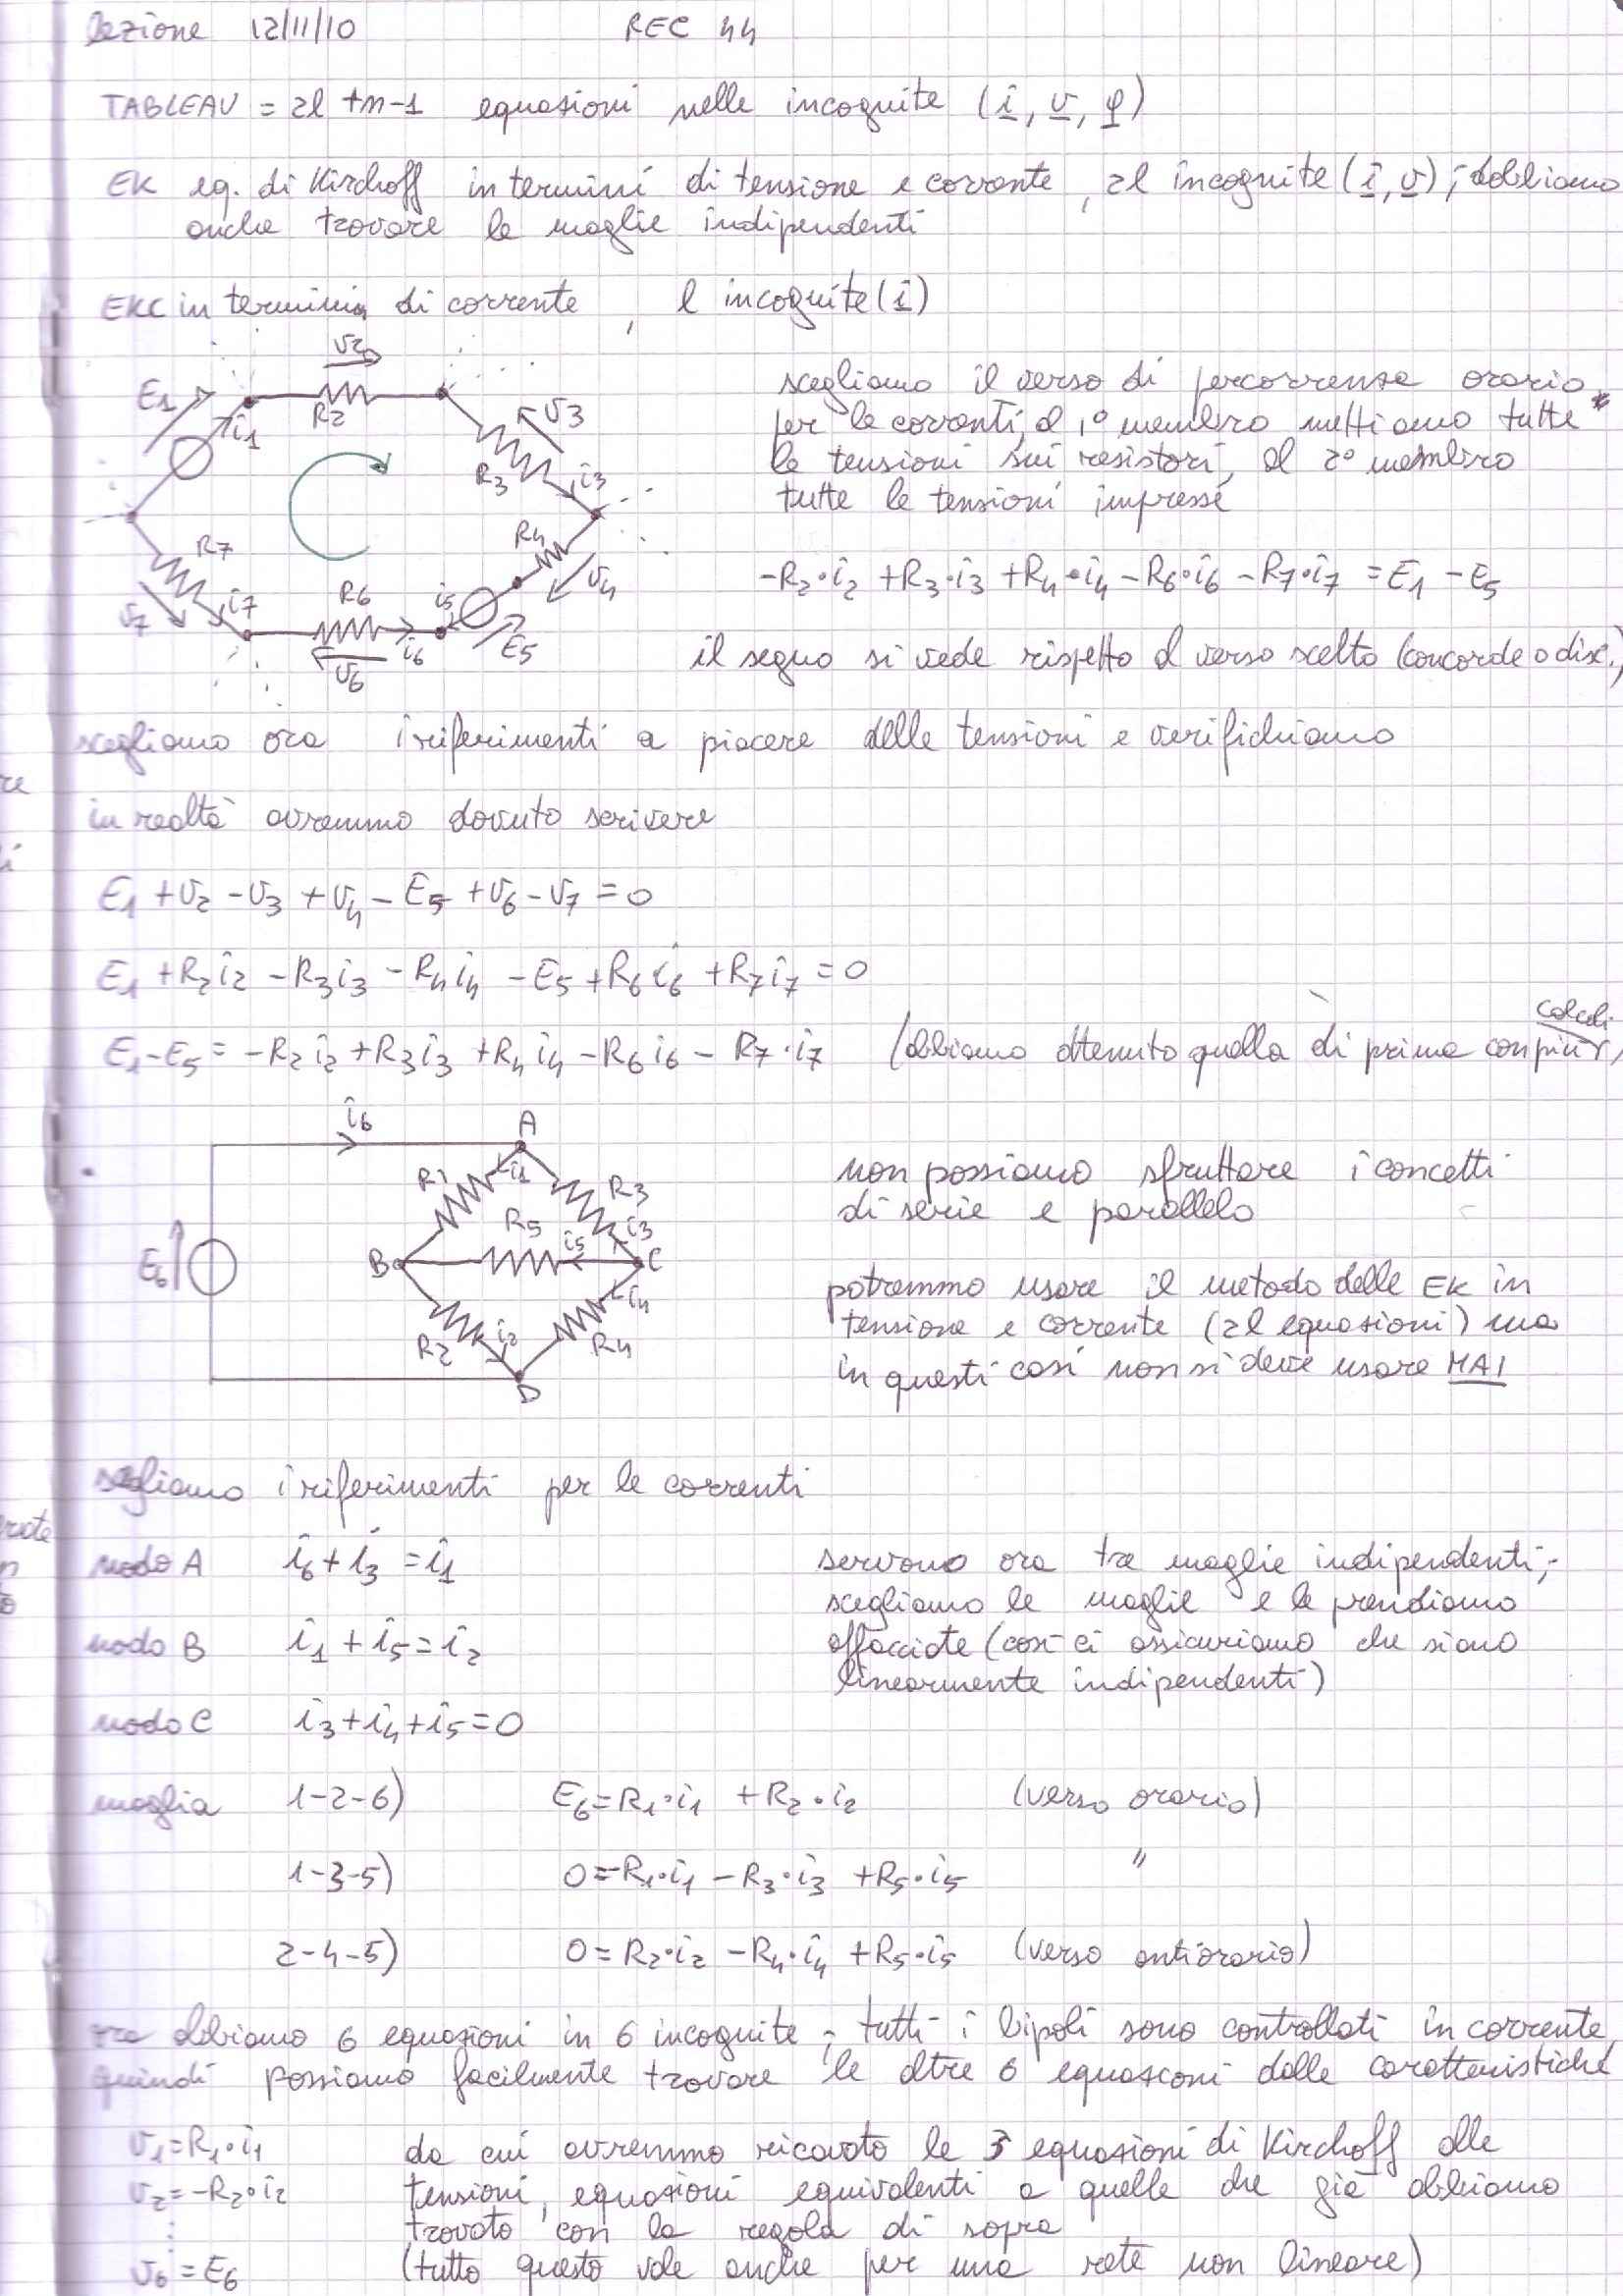 lezione 12/11/10 REC 44
TABLEAU = 2l +n-1 equazioni nelle incognite (i, v, φ)
EK eq. di Kirchoff in termini di tensione e corrente, 2l incognite (i, v); dobbiamo
anche trovare le maglie indipendenti
EKC in termini di corrente, l incognite (i)
v2
E1
i1
R2
v3
R3
i3
R4
v4
R7
v7
i7
R6
v6
i6
i5
E5
scegliamo il verso di percorrenza orario
per le correnti, al 1° membro mettiamo tutte *
le tensioni sui resistori, al 2° membro
tutte le tensioni impresse
-R2·i2 +R3·i3 +R4·i4 -R6·i6 -R7·i7 = E1 -E5
il segno si vede rispetto al verso scelto (concorde o disc.)
scegliamo ora i riferimenti a piacere delle tensioni e verifichiamo
in realtà avremmo dovuto scrivere
E1 +v2 -v3 +v4 -E5 +v6 -v7 =0
E1 +R2i2 -R3i3 -R4i4 -E5 +R6i6 +R7i7 =0
E1-E5 = -R2i2 +R3i3 +R4i4 -R6i6 - R7·i7 (abbiamo ottenuto quella di prima con più calcoli)
i6
A
R1
i1
R3
i3
R5
i5
B
C
E6
R2
i2
R4
i4
D
non possiamo sfruttare i concetti
di serie e parallelo
potremmo usare il metodo delle EK in
tensione e corrente (2l equazioni) ma
in questi casi non si deve usare MAI
scegliamo i riferimenti per le correnti
nodo A i6+i3 =i1
nodo B i1+i5=i2
nodo C i3+i4+i5=0
servono ora tre maglie indipendenti;
scegliamo le maglie e le prendiamo
affacciate (così ci assicuriamo che siano
linearmente indipendenti)
maglia 1-2-6) E6=R1·i1 +R2·i2 (verso orario)
1-3-5) 0=-R1·i1 -R3·i3 +R5·i5 "
2-4-5) 0=R2·i2 -R4·i4 +R5·i5 (verso antiorario)
ora abbiamo 6 equazioni in 6 incognite; tutti i bipoli sono controllati in corrente,
quindi possiamo facilmente trovare le altre 6 equazioni dalle caratteristiche
v1=R1·i1
v2=-R2·i2
⋮
v6 = E6
da cui avremmo ricavato le 3 equazioni di Kirchoff alle
tensioni, equazioni equivalenti a quelle che già abbiamo
trovato con la regola di sopra
(tutto questo vale anche per una rete non lineare)